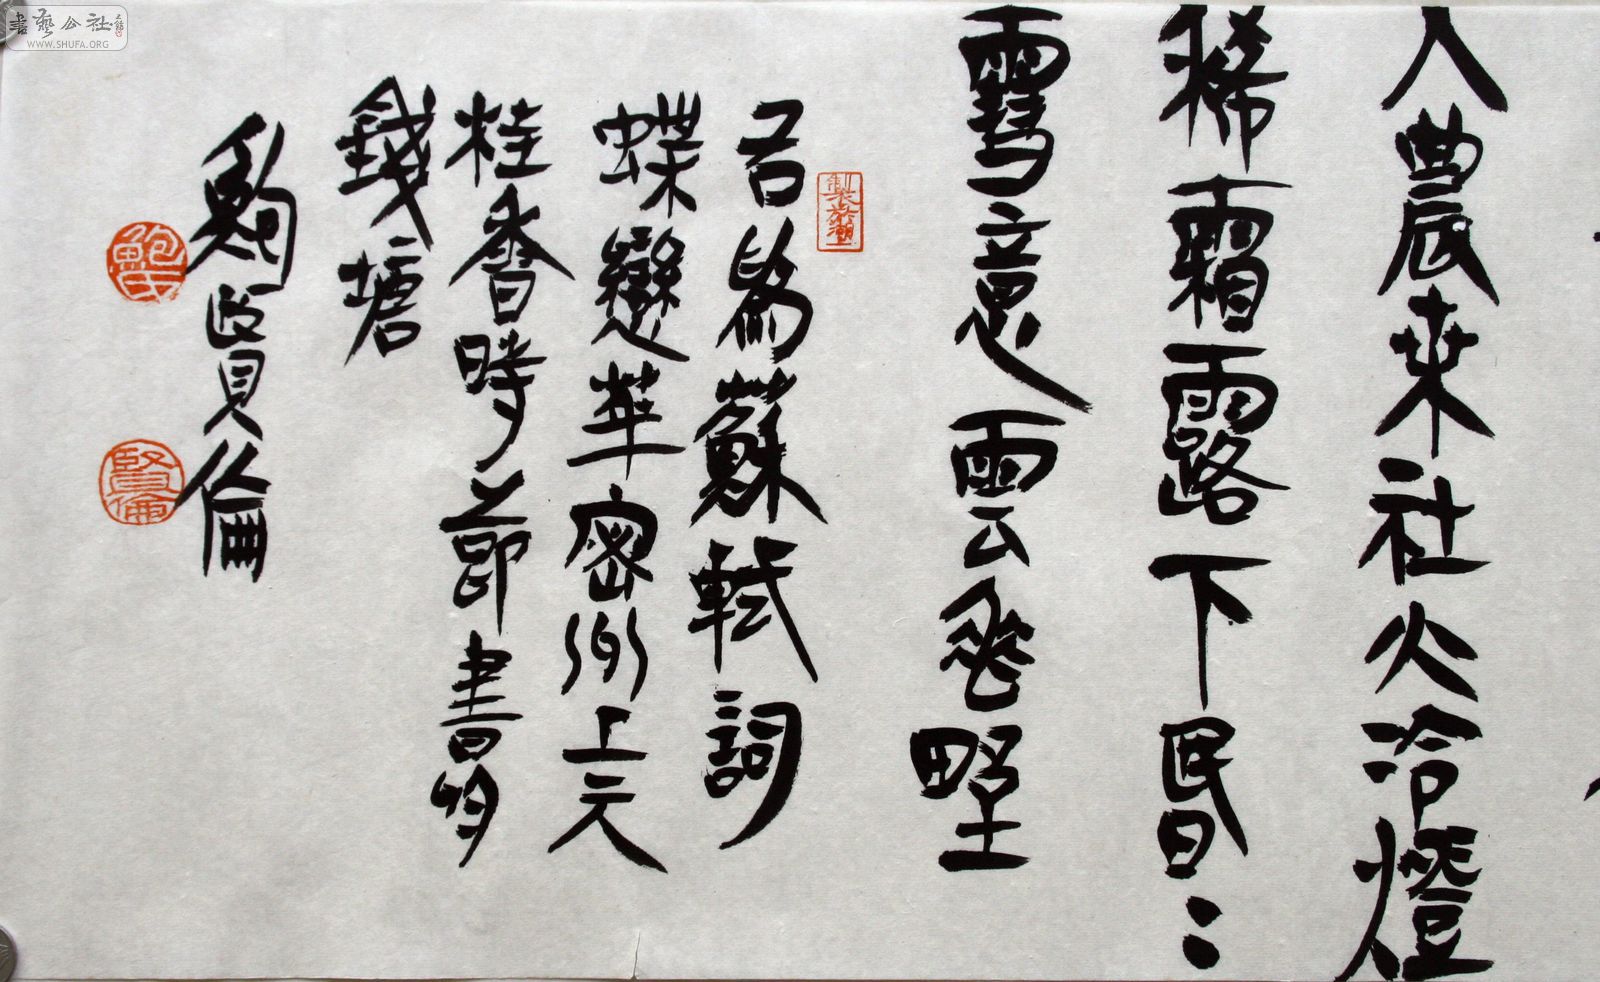 入農桒社火冷燈
稀霜露下昬〻
雪意雲垂野
右為蘇軾詞
蝶戀華密州上元
桂香時節書於
錢塘
鮑賢倫
鮑氏
賢倫
書藝公社
WWW.SHUFA.ORG